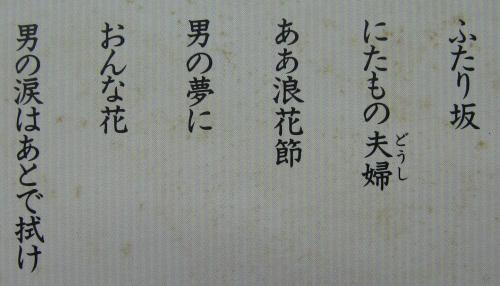 ふたり坂
にたもの夫婦
どうし
ああ浪花節
男の夢に
おんな花
男の涙はあとで拭け